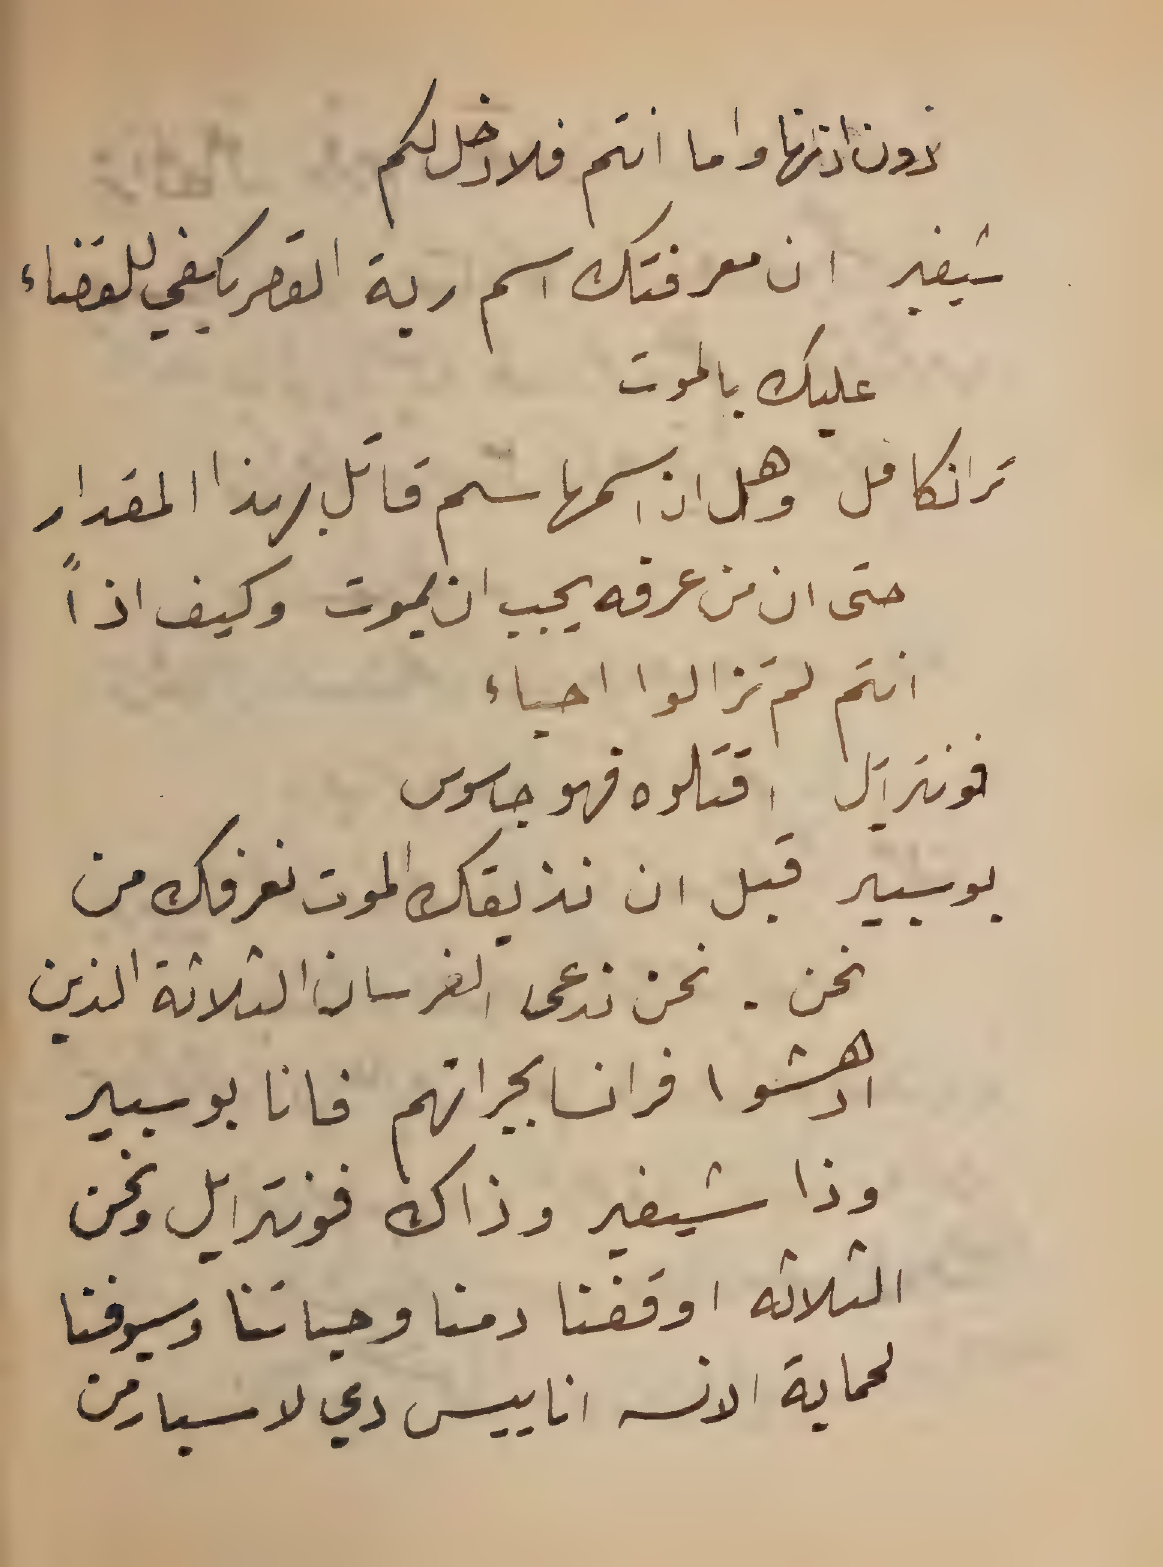 دون اذنها واما انتم فلا دخل لكم
شيفير ان معرفتك اسم ربة القصر يكفي للقضاء
عليك بالموت
ترانكافل وهل ان اسمها سم قاتل بهذا المقدار
حتى ان من عرفه يجب ان يموت وكيف اذاً
انتم لم تزالوا احياء
فونترايل اقتلوه فهو جاسوس
بوسبير قبل ان نذيقك الموت نعرفك من
نحن . نحن ندعى الفرسان الثلاثة الذين
ادهشوا فرانسا بجراتهم فانا بوسبير
وذا شيفير وذاك فونترايل ونحن
الثلاثه اوقفنا دمنا وحياتنا وسيوفنا
لحماية الانسه اناييس دي لاسبار من